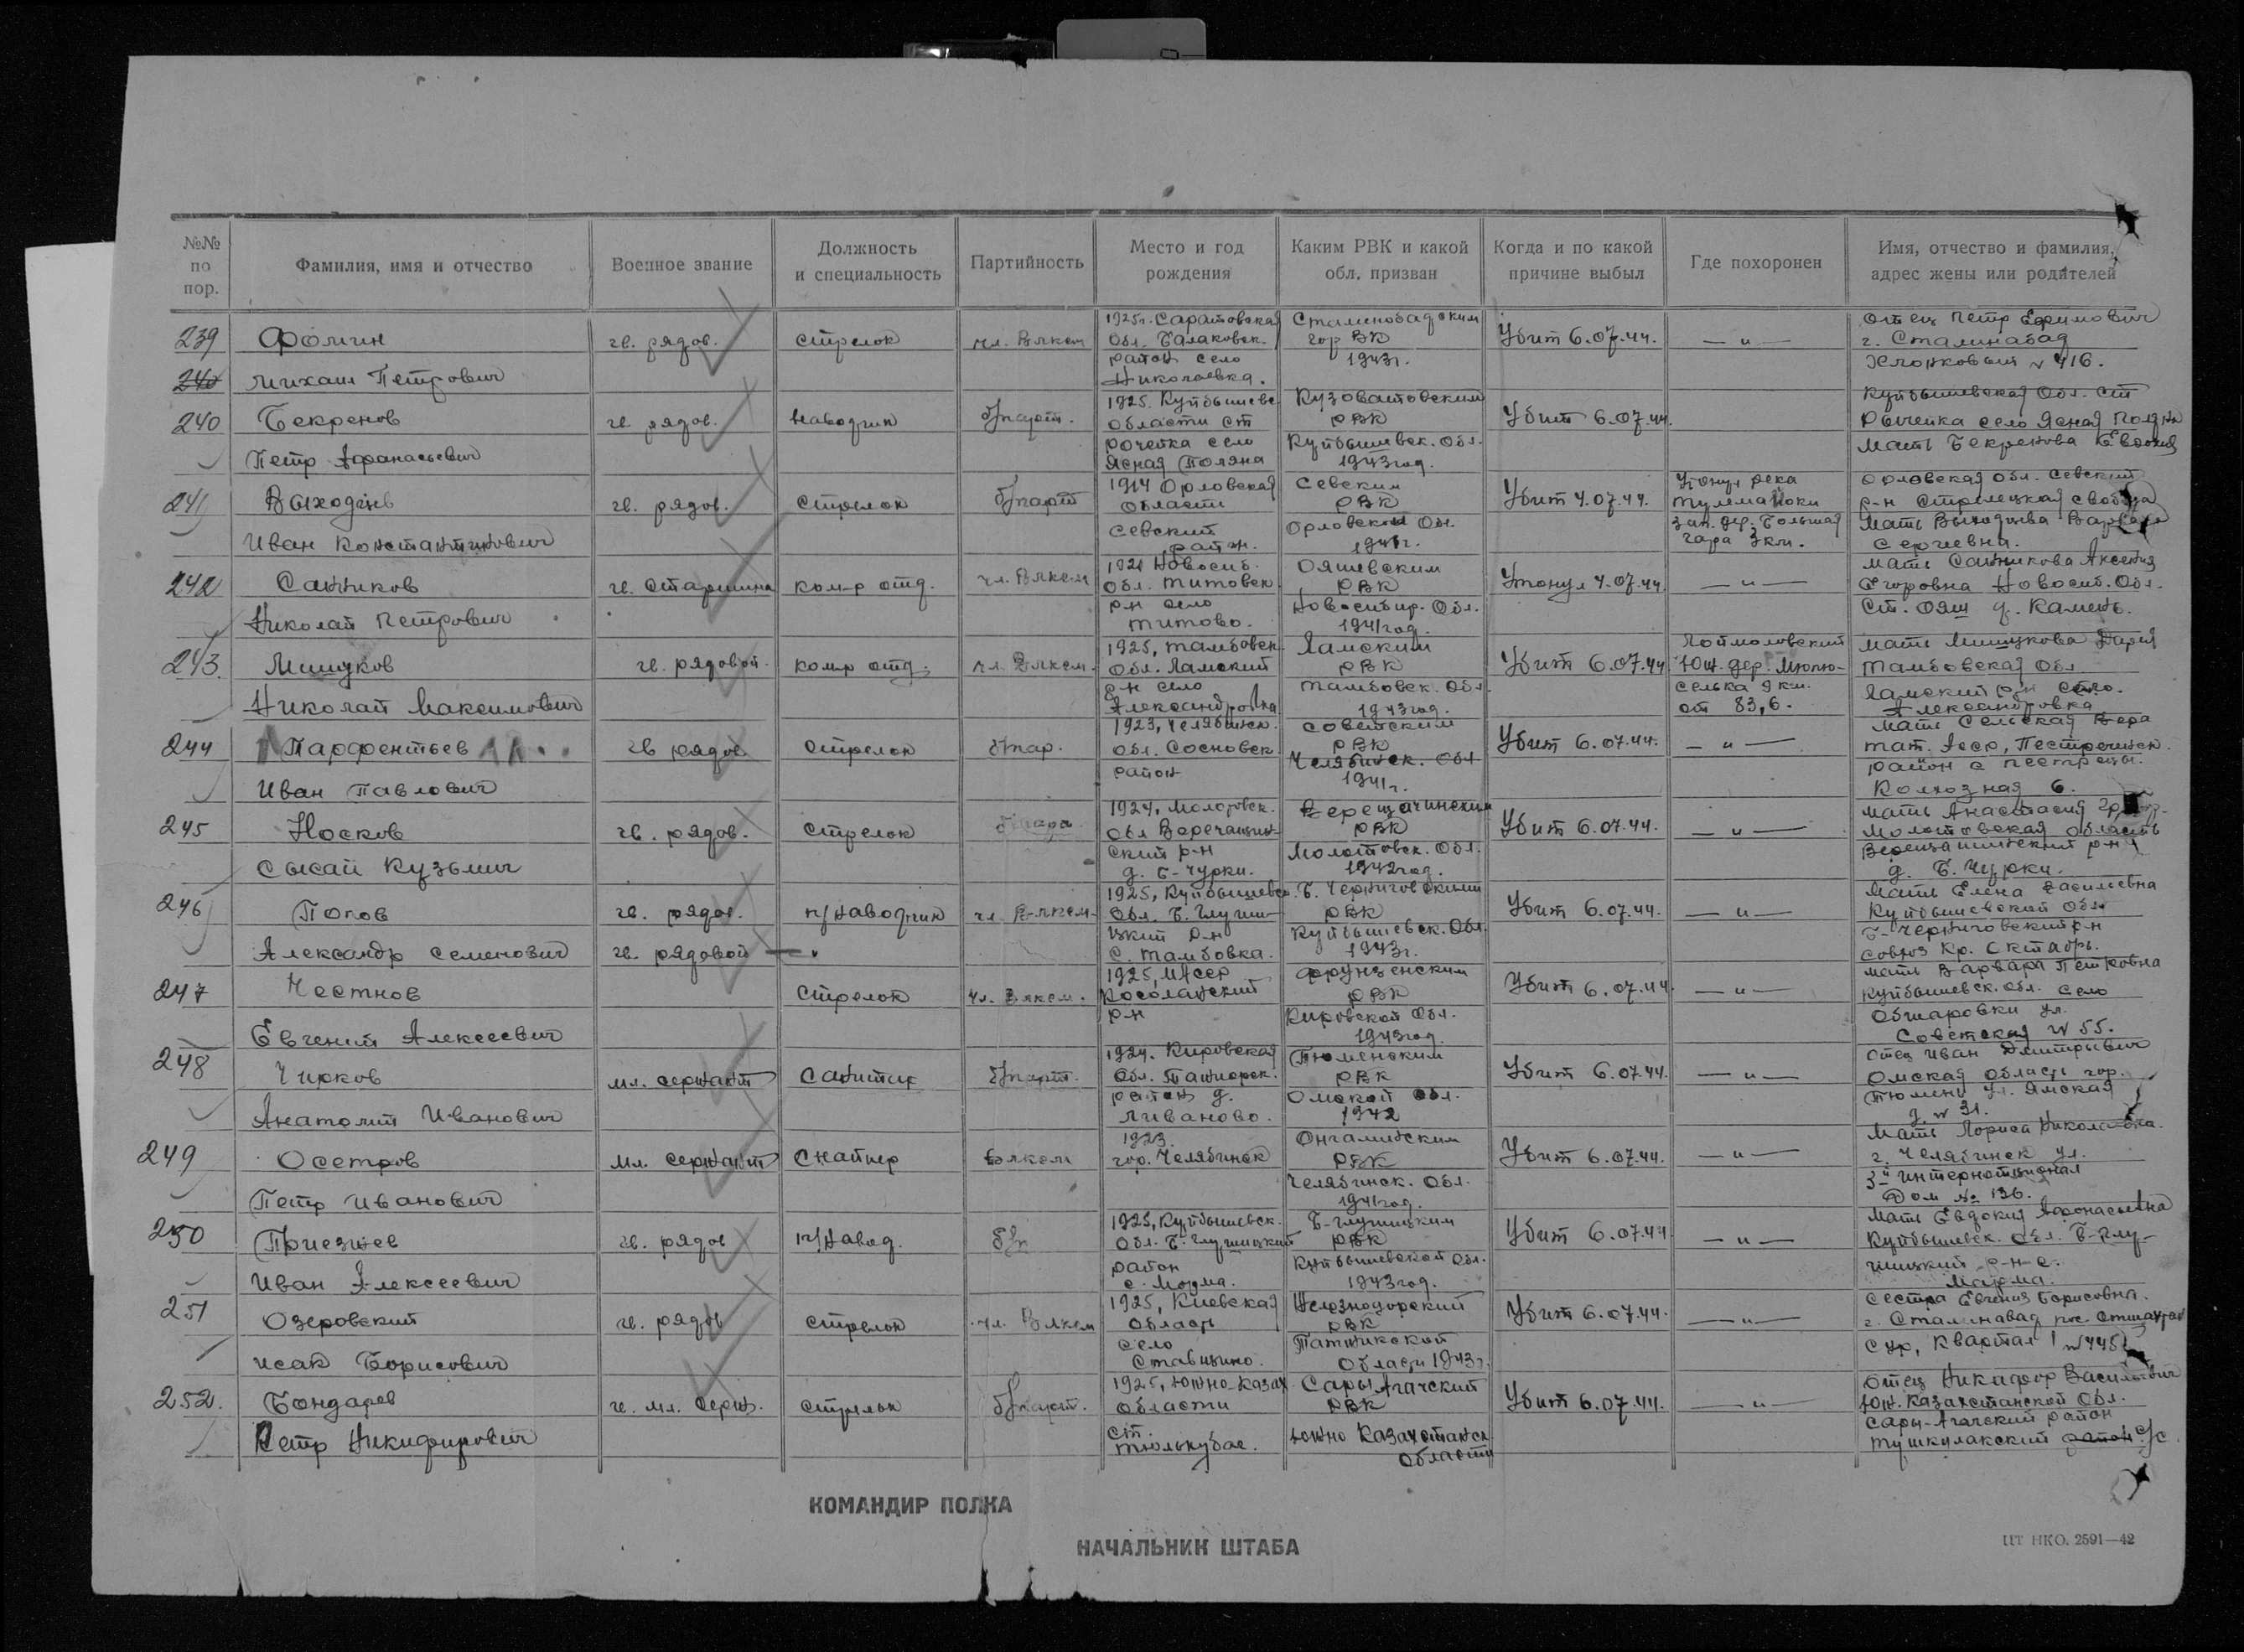 №№ по пор.
Фамилия, имя и отчество
Военное звание
Должность и специальность
Партийность
Место и год рождения
Каким РВК и какой обл. призван
Когда и по какой причине выбыл
Где похоронен
Имя, отчество и фамилия, адрес жены или родителей
239 Фомин гв. рядов. стрелок чл. Влксм 1925г. Саратовская Сталинобадским Убит 6.07.44. — " — Отец Петр Ефимович
Обл. Балаковск. гор РВК г. Сталинабад
район село 1943г. Хлопковый № 416.
240 Михаил Петрович Николаевка.
240 Бекренов гв. рядов. наводчик б/парт. 1925. Куйбышевс Кузоватовским Убит 6.07.44. Куйбышевская Обл. ст
области ст РВК село Ясная Поляна
село Куйбышевск. Обл. Мать Бекренова
Петр Афанасьевич Ясная Поляна 1943год.
241 гв. рядов. стрелок б/парт 1914 Орловская Севским Убит 4.07.44. река Орловская обл. Севский
области РВК р-н Стрелецкая
Севский Орловской Обл. зап. дер. Большая Мать
Иван Константинович район. гора 3км. Сергиевна.
242 Санников гв. старшина ком-р отд. чл. Влксм 1921 Новосиб. Ояшевским Утонул 4.07.44. — " — Мать Санникова Аксения
Обл. Титовск РВК Егоровна Новосиб. Обл.
р-н село Новосибир. Обл. Ст. Ояш д. Камень.
Николай Петрович Титово. 1941год.
243. Мишуков гв. рядовой. ком-р отд. чл. Влксм. 1925, Тамбовск. Ламским Убит 6.07.44 Лоймоловский Мать Мишукова Дарья
Обл. Ламский РВК Юж. дер. Тамбовская Обл
р-н село Тамбовск. Обл. селька 9 км. Ламский р-н село.
Николай Максимович Александровка 1943год. от 83,6. Александровка
244 Парфентьев гв рядов. стрелок б/пар. 1923, Челябинск. Советским Убит 6.07.44. — " — Мать Вера
обл. Сосновск РВК Тат. Асср, Пестречинск.
район Челябинск. Обл район с Пестрецы.
Иван Павлович 1941г. Колхозная 6.
245 Носков гв. рядов. стрелок 1924, Молотовск. Верещагинским Убит 6.07.44. — " — Мать Анастасия
РВК Молотовская область
ский р-н Молотовск. Обл. р-н
Сысай Кузьмич д. Б-Чурки. 1942год. д. Б. Чурки.
246 Попов гв. рядов. п/наводчик чл. Влксм. 1925, Куйбышевск. Б. Черниговским Убит 6.07.44. — " — Мать Елена Васильевна
Обл. Б. Глуши- РВК Куйбышевской Обл
цкий р-н Куйбышевск. Обл. Б-Черниговский р-н
Александр Семенович гв. рядовой с. Тамбовка. 1943г. совхоз Кр. Октябрь.
247 Честнов стрелок чл. Влксм. 1925, Фрунзенским Убит 6.07.44 — " — Мать Варвара Петровна
РВК Куйбышевск. обл. село
р-н Кировской Обл. Обшаровки ул.
Евгений Алексеевич 1943год. Советская № 55.
248 Чирков мл. сержант Санитар б/парт. 1924. Кировская Тюменским Убит 6.07.44. — " — Отец Иван Дмитрьевич
Обл. РВК Омская область гор.
район д. Омской обл. Тюмень ул. Ямская
Анатолий Иванович Ливаново. 1942 д. № 31.
249 Осетров мл. сержант Снайпер Влксм 1923. Убит 6.07.44. — " — Мать Лориса Николаевна.
гор. Челябинск РВК г. Челябинск ул.
Челябинск. Обл. 3й интернационал
Петр Иванович 1941год. Дом № 136.
250 Приезжев гв. рядов п/навод. б/п 1925, Куйбышевск. Б-Глушицким Убит 6.07.44. — " — Мать Евдокия Афонасьевна
обл. Б. Глушицкий РВК Куйбышевск. Обл. Б-Глу-
район Куйбышевской Обл. шицкий р-н с.
Иван Алексеевич с. Мокша. 1943год.
251 Озеровский гв. рядов стрелок чл. Влксм 1925, Киевская Убит 6.07.44. — " — Сестра Евгения Борисовна.
область РВК г. Сталинабад
село Квартал 1 № 445
Исак Борисович Ставищино. Области 1943г.
252. Бондарев гв. мл. серж. стрелок б/парт. 1925, Южно-Казах Сары Агачский Убит 6.07.44. — " — Отец Никифор Васильевич
области РВК Юж. Казахстанской Обл.
ст. Южно Казахстанск. Сары-Агачский район
Петр Никифирович Тюлькубас. области Тушкулакский с/с
КОМАНДИР ПОЛКА
НАЧАЛЬНИК ШТАБА
ЦТ НКО. 2591—42